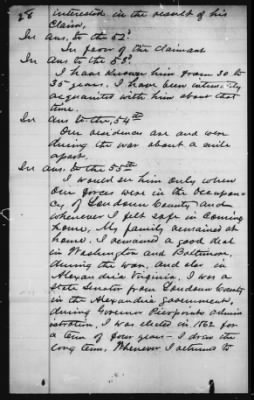 28 interested in the result of his
claim.
In Ans. to the 52d
In favor of the claimant
In Ans to the 53d
I have known him from 30 to
35 years. I have been
acquainted with him about that
time.
In Ans to the 54th
Our residences are and were
during the war about a mile
apart.
In Ans. to the 55th
I would see him only when
our forces were in the occupan-
cy of Loudoun County, and
whenever I felt safe in coming
home. My family remained at
home. I remained a good deal
in Washington and Baltimore,
during the war. And also in
Alexandria Virginia. I was a
State Senator from Loudoun County
in the Alexandria government,
during Governor Pierponts admin-
istration. I was elected in 1862 for
a term of four years - I drew the
long term. Whenever I returned to